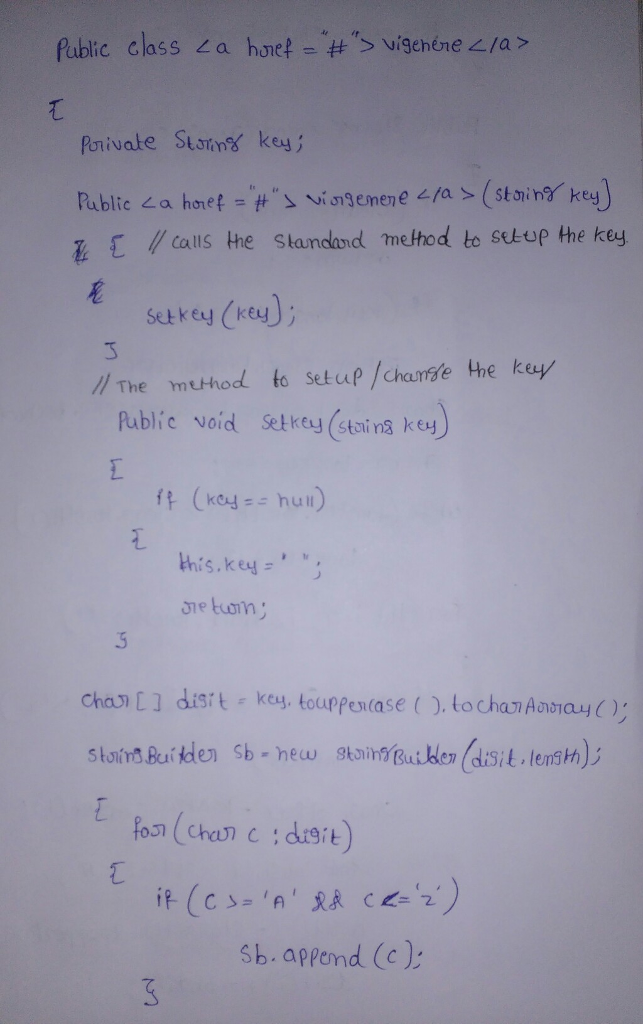 Public class <a href = "#"> vigenere </a>
{
Private String key;
Public <a href = "#"> viogemere </a> (string key)
{ // calls the standard method to setup the key.
setkey (key);
}
// The method to setup / change the key
Public void setkey (string key)
{
if (key == null)
{
this.key = " ";
return;
}
char [ ] digit = key. touppercase ( ). tocharArray ( );
string Builder sb = new string Builder (digit. length);
{
for (char c : digit)
{
if (c >= 'A' && c <= 'z')
sb. append (c);
}